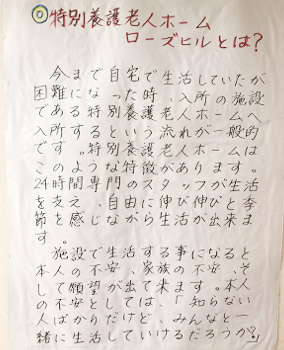 ◎特別養護老人ホーム
ローズヒルとは?
今まで自宅で生活していたが
困難になった時、入所の施設
である特別養護老人ホームへ
入所するという流れが一般的
です。特別養護老人ホームは
このような特徴があります。
24時間専門のスタッフが生活
を支え、自由に伸び伸びと季
節を感じながら生活が出来ま
す。
施設で生活する事になると
本人の不安、家族の不安、そ
して願望が出て来ます。本人
の不安としては、「知らない
人ばかりだけど、みんなと一
緒に生活していけるだろうか?」